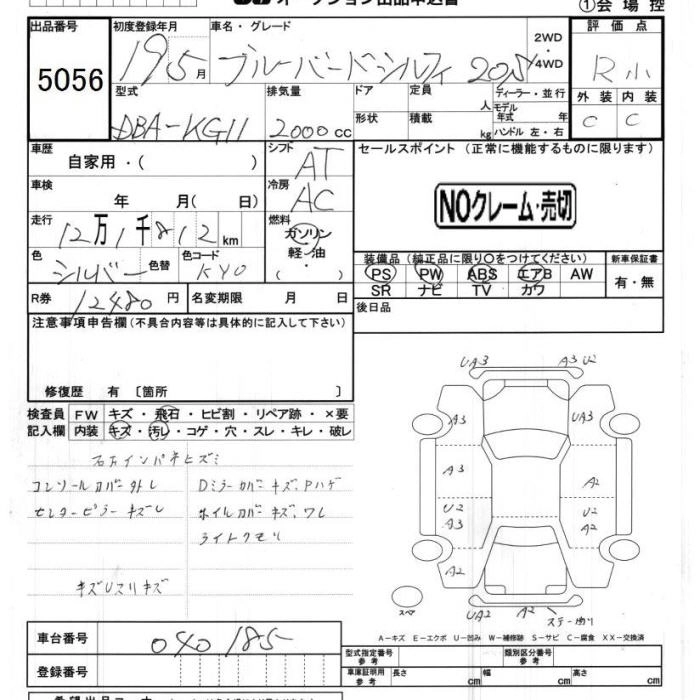 オークション出品申込書
①会場控
出品番号 初度登録年月 車名・グレード 評価点
5056 19 5月 ブルーバードシルフィ 20S 2WD・4WD R小
型式 排気量 ドア 定員 人 ディーラー・並行 外装 内装
DBA-KG11 2000cc 形状 積載 kg モデル年式 年 ハンドル 左・右 C C
車歴 シフト セールスポイント (正常に機能するものに限ります)
自家用・( ) AT
車検 冷房 NOクレーム・売切
年 月( 日) AC
走行 燃料
12万1千812km ガソリン
色 色替 色コード 軽・油 装備品 (純正品に限り○をつけてください) 新車保証書
シルバー KY0 ・( ) PS PW ABS エアB AW 有・無
SR ナビ TV カワ
R券 12480円 名変期限 月 日 後日品
注意事項申告欄 (不具合内容等は具体的に記入して下さい)
修復歴 有 〔箇所 〕
検査員 FW キズ・飛石・ヒビ割・リペア跡・×要
記入欄 内装 キズ・汚レ・コゲ・穴・スレ・キレ・破レ
コンソールカバー外レ Dミラーカバーキズ、Pハゲ
センターピラーキズU ホイルカバーキズ、ワレ
ライトクモリ
UA3 A3 U2
A3 UA3
A3 A2
U2 U2
A3 A2
A2 A2
スペア UA2 A2
A-キズ E-エクボ U-凹み W-補修跡 S-サビ C-腐食 XX-交換済
車台番号 040185
登録番号
型式指定番号 参考 類別区分番号 参考
車庫証明用 参考 長さ cm 幅 cm 高さ cm